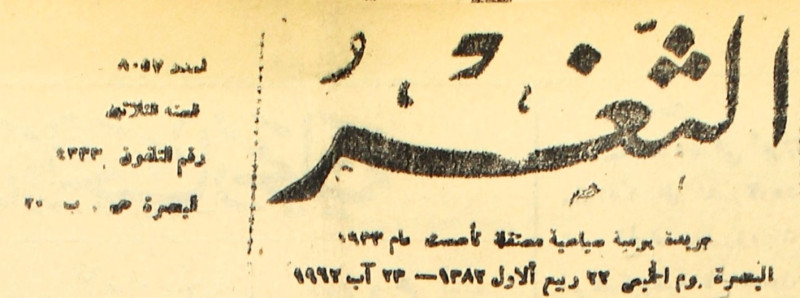 الثغر
جريدة يومية سياسية مستقلة تأسست عام ١٩٣٣
البصرة يوم الخميس ٢٢ ربيع ألاول ١٣٨٢ — ٢٣ آب ١٩٦٢
العدد ٨٠٥٧
السنة الثلاثون
رقم التلفون
البصرة ص . ب ٢٠